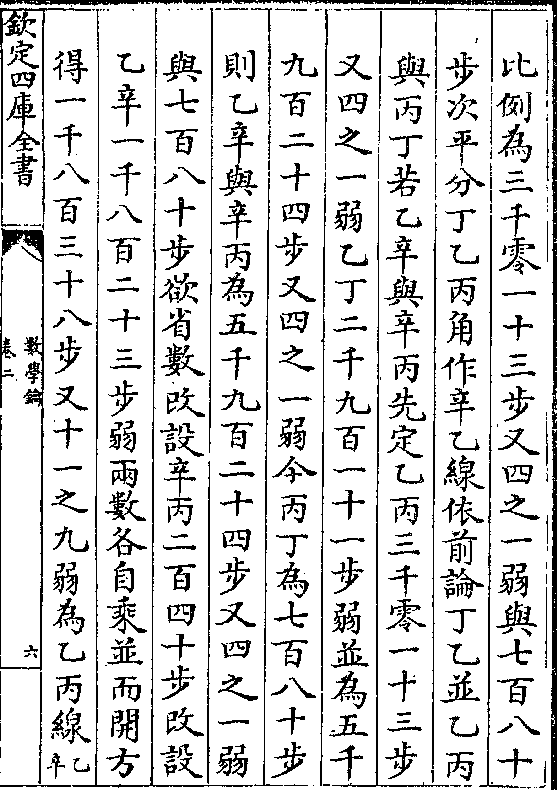 比例為三千零一十三步又四之一弱與七百八十
步次平分丁乙丙角作辛乙線依前論丁乙並乙丙
與丙丁若乙辛與辛丙先定乙丙三千零一十三步
又四之一弱乙丁二千九百一十一步弱並為五千
九百二十四步又四之一弱今丙丁為七百八十步
則乙辛與辛丙為五千九百二十四步又四之一弱
與七百八十步欲省數改設辛丙二百四十步改設
乙辛一千八百二十三步弱兩數各自乘並而開方
得一千八百三十八步又十一之九弱為乙丙線乙
辛
欽定四庫全書
數學鑰
卷二
六